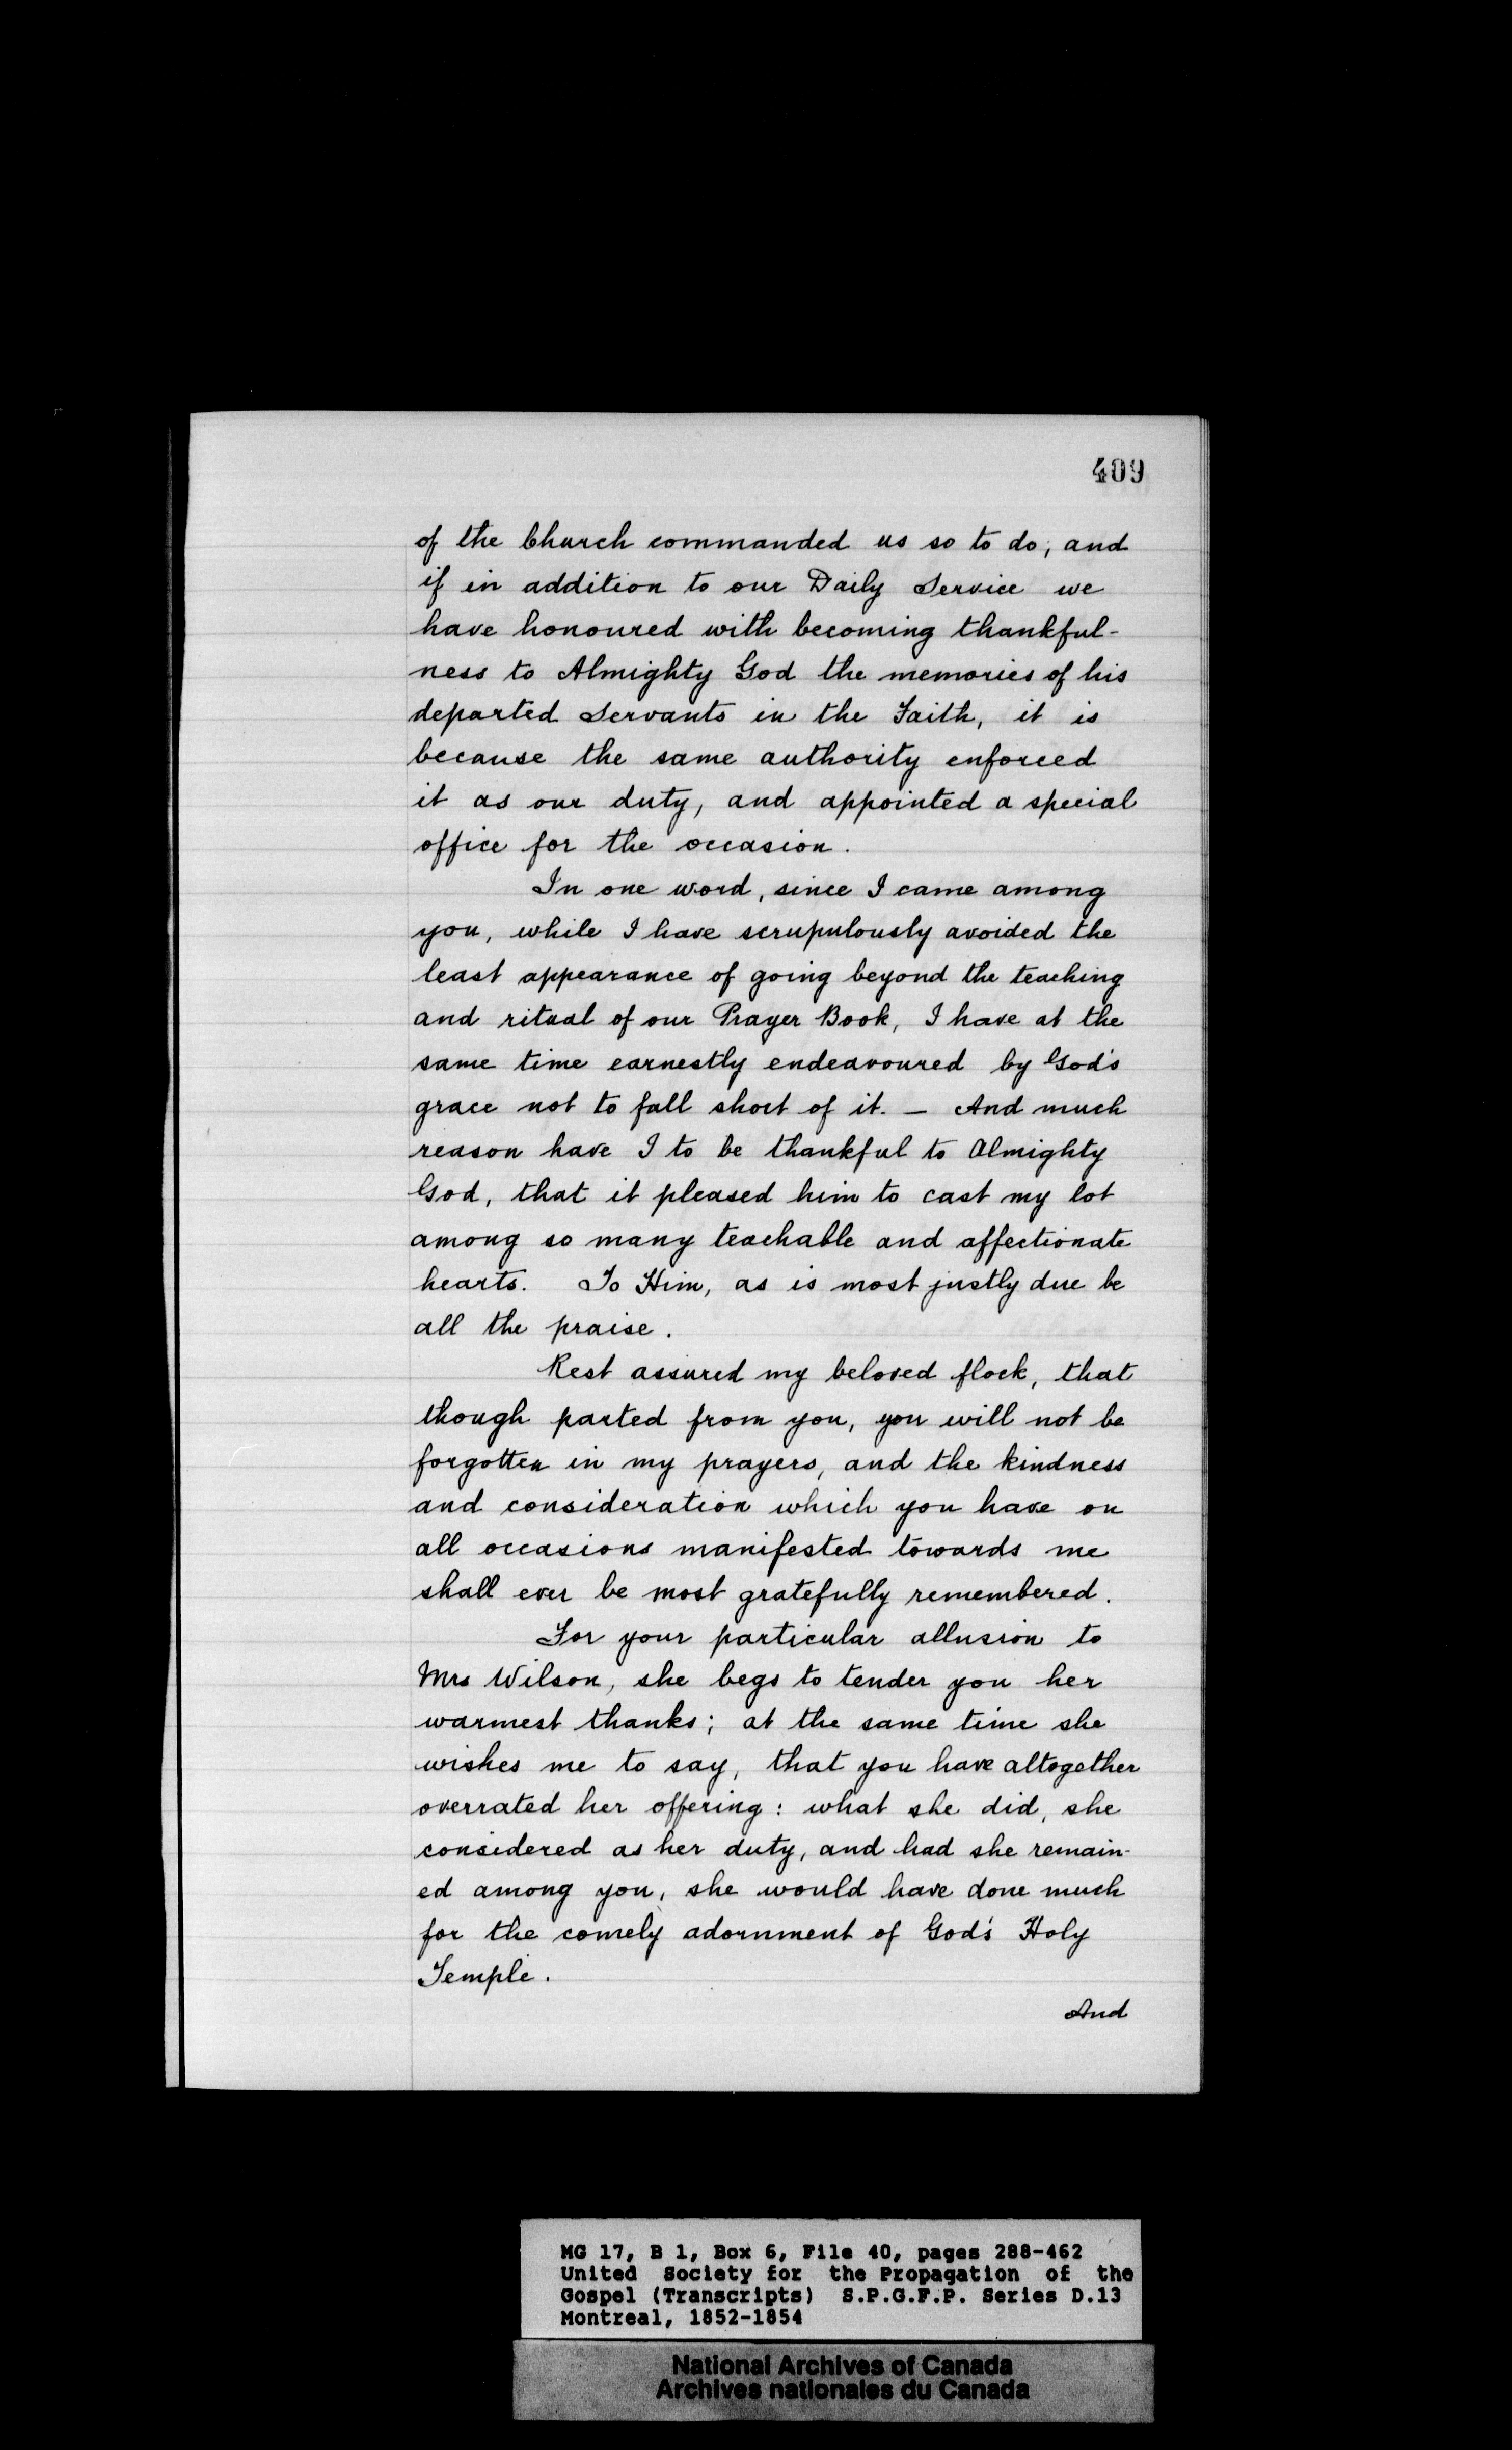 409
of the Church commanded us so to do, and
if in addition to our Daily Service we
have honoured with becoming thankful-
ness to Almighty God the memories of his
departed Servants in the Faith, it is
because the same authority enforced
it as our duty, and appointed a special
office for the occasion.
In one word, since I came among
you, while I have scrupulously avoided the
least appearance of going beyond the teaching
and ritual of our Prayer Book, I have at the
same time earnestly endeavoured by God's
grace not to fall short of it. — And much
reason have I to be thankful to Almighty
God, that it pleased him to cast my lot
among so many teachable and affectionate
hearts. To Him, as is most justly due be
all the praise.
Rest assured my beloved flock, that
though parted from you, you will not be
forgotten in my prayers, and the kindness
and consideration which you have on
all occasions manifested towards me
shall ever be most gratefully remembered.
For your particular allusion to
Mrs Wilson, she begs to tender you her
warmest thanks; at the same time she
wishes me to say, that you have altogether
overrated her offering: what she did, she
considered as her duty, and had she remain-
ed among you, she would have done much
for the comely adornment of God's Holy
Temple.
And
MG 17, B 1, Box 6, File 40, pages 288-462
United Society for the Propagation of the
Gospel (Transcripts) S.P.G.F.P. Series D.13
Montreal, 1852-1854
National Archives of Canada
Archives nationales du Canada